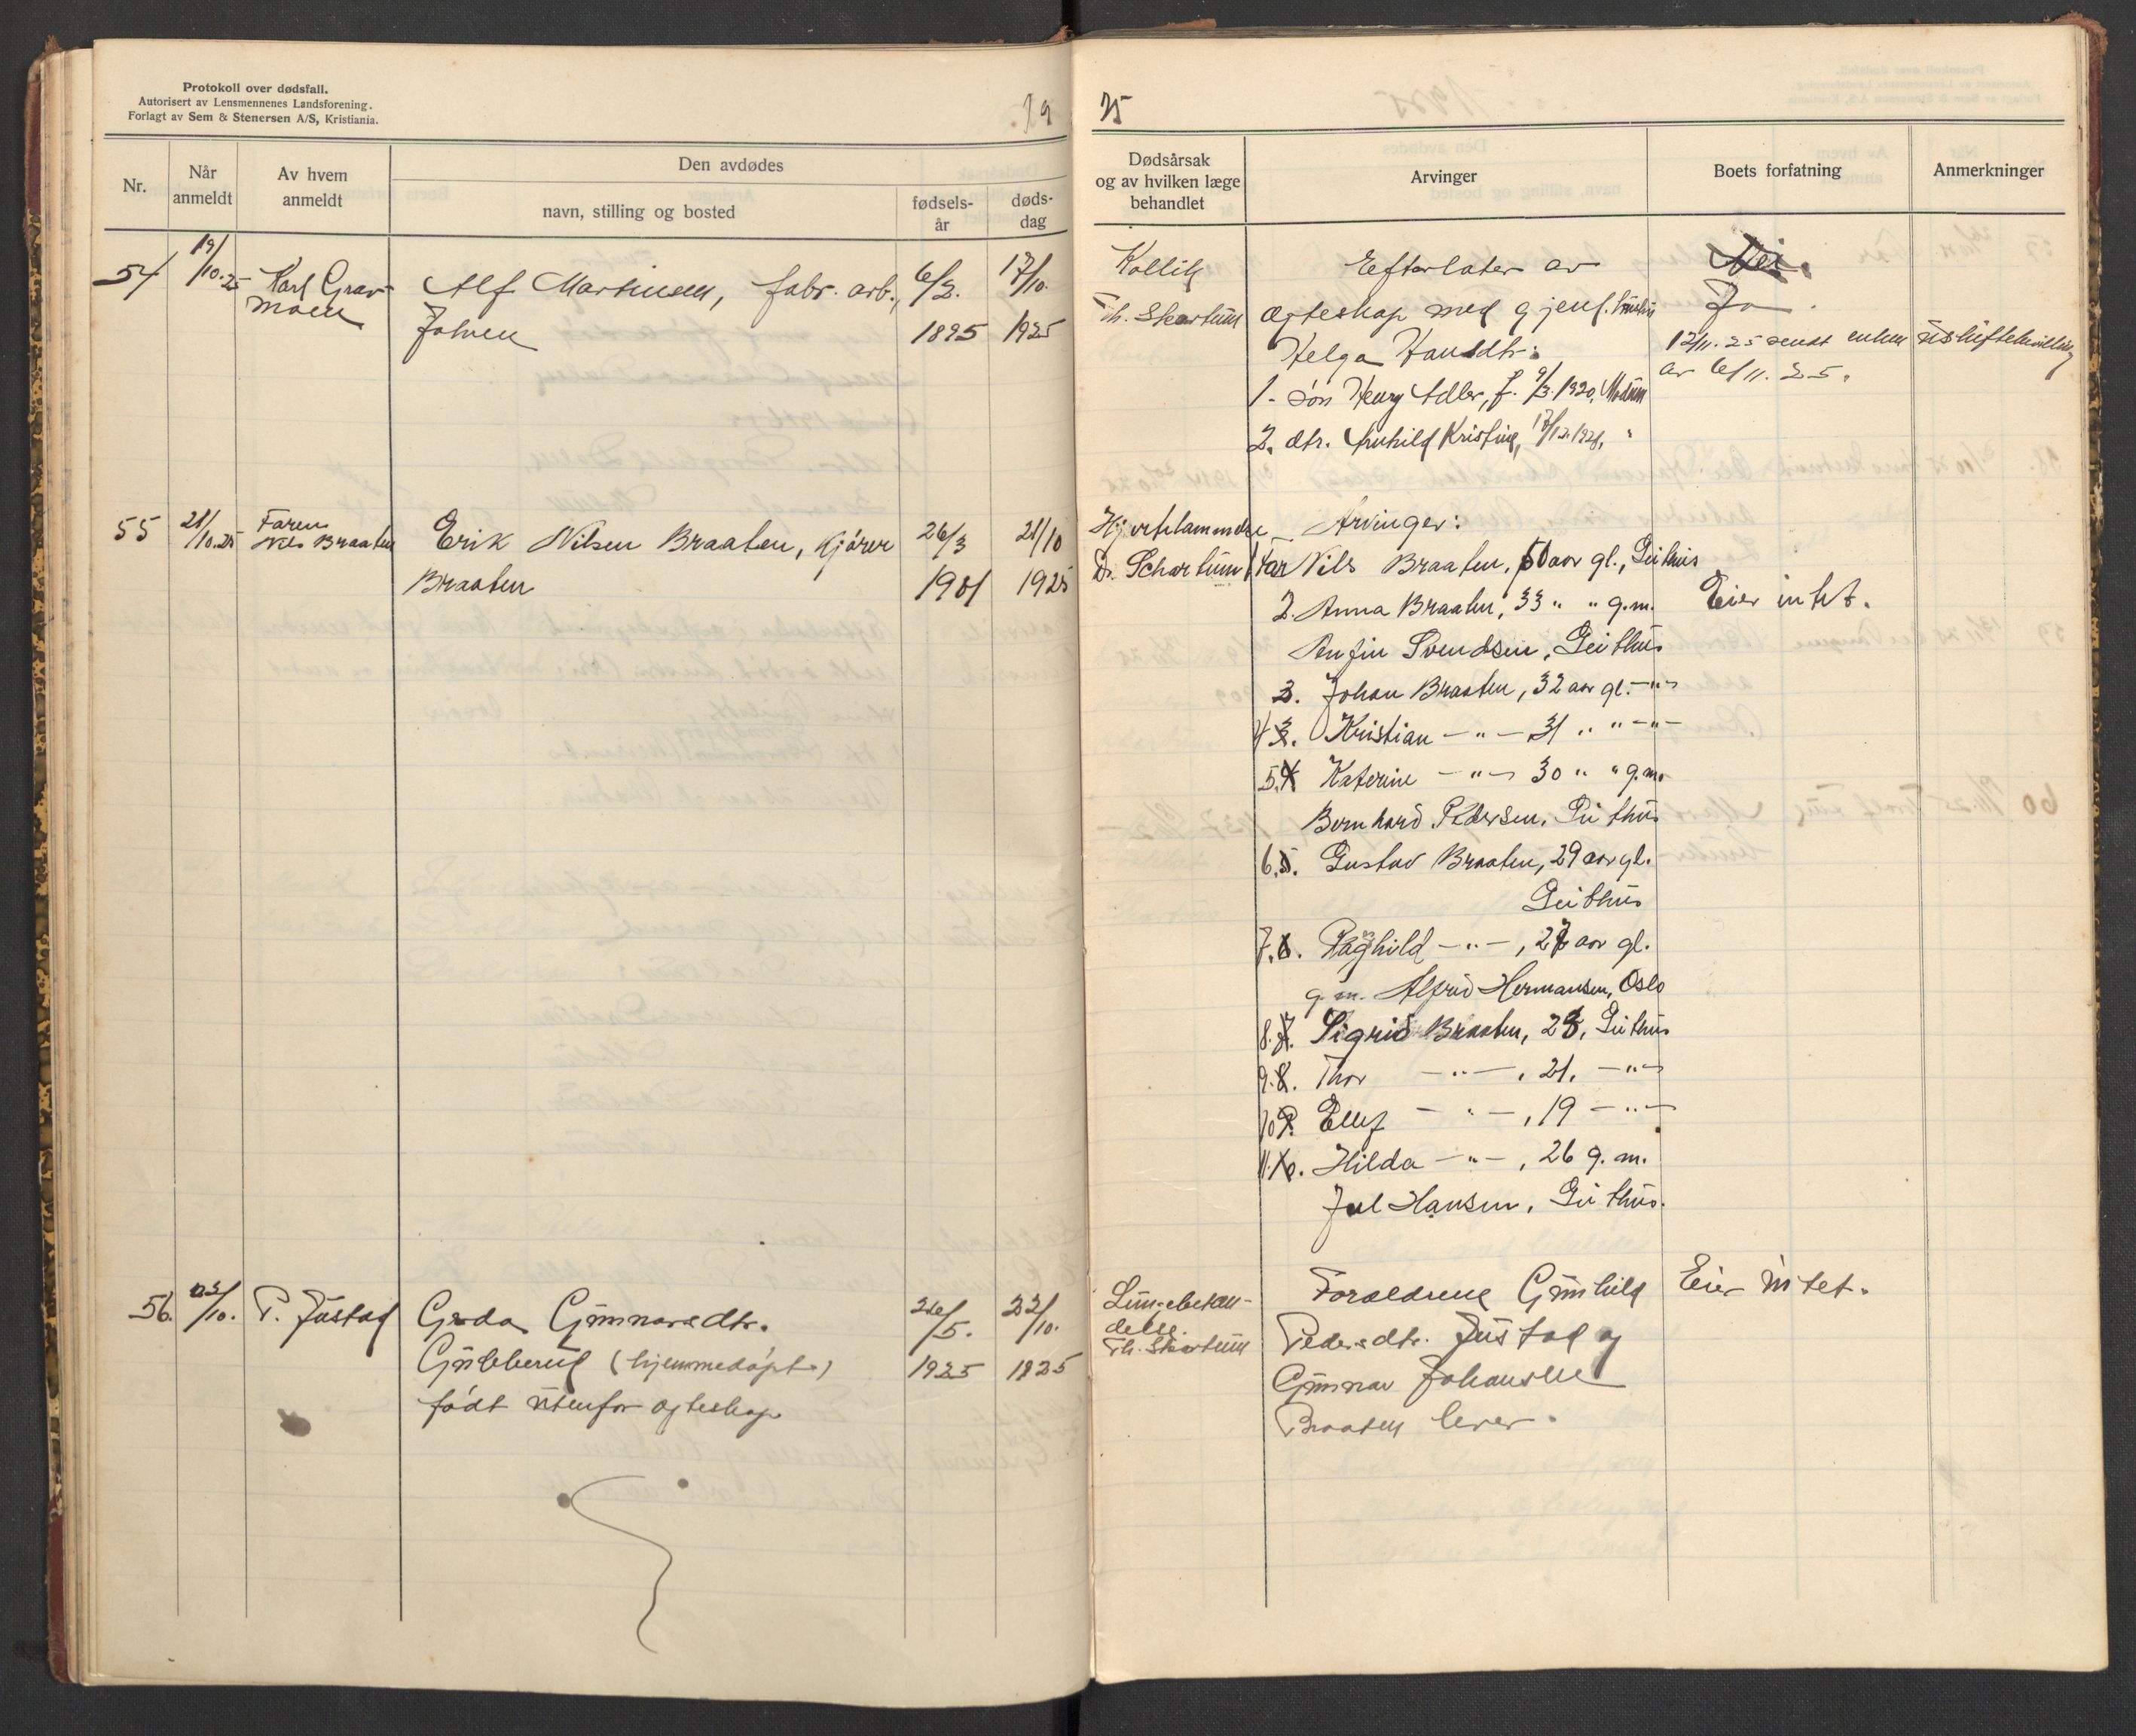 Protokoll over dødsfall.
Autorisert av Lensmennenes Landsforening.
Forlagt av Sem & Stenersen A/S, Kristiania.
19
Nr.
Når anmeldt
Av hvem anmeldt
Den avdødes
navn, stilling og bosted
fødsels-
år
døds-
dag
54 19/10.25 Karl Grav- Alf Martinsen, fabr. arb., 6/2. 17/10.
moen 1895 1925
55 21/10.25 Faren
Nils Braaten Erik Nilsen Braaten, Kjører 26/3 21/10
Braaten 1901 1925
56. 23/10. P. Justad Gerda Gunnarsdtr. 26/5. 22/10.
(hjemmedøpt) 1925 1925
født utenfor ogteskap
25
Dødsårsak
og av hvilken læge
behandlet
Arvinger
Boets forfatning
Anmerkninger
Efterlater av Nei.
Th. Skartum ægteskap med gjenl. Ja.
Helga Hansdtr. 12/11.25 sendt enken uskiftebevilling
av 6/11.25.
1. søn Henry Adler, f. 9/3.1920, Modum
2. dtr. Kristine, "
Hjertelammelse Arvinger:
Dr. Schartum 1 Far Nils Braaten, aar gl., Geithus
2. Anna Braaten, 33 " " g.m. Eier intet.
Svendsen, Geithus
3. Johan Braaten, 32 aar gl. -"-
4 3. Kristian -"- 31 " " -"-
5. 4 Katerine -"- 30 " " g.m.
Bernhard Pedersen, Geithus
6. 5. Gustav Braaten, 29 aar gl.
Geithus
7. 6. Raghild -"-, aar gl.
g.m. Alfred Hermansen, Oslo
8. 7. Sigrid Braaten, Geithus
9. 8. Thor -"-, 21, -"-
10 9. Ellef -"-, 19 -"-
11. 10. Hilda -"-, 26 g.m.
Jul Hansen, Geithus.
Lungebetæn- Forældrene Gunhild Eier intet.
delse.
Th. Skartum Pedersdtr. Justad og
Gunnar Johansen
Braaten lever.